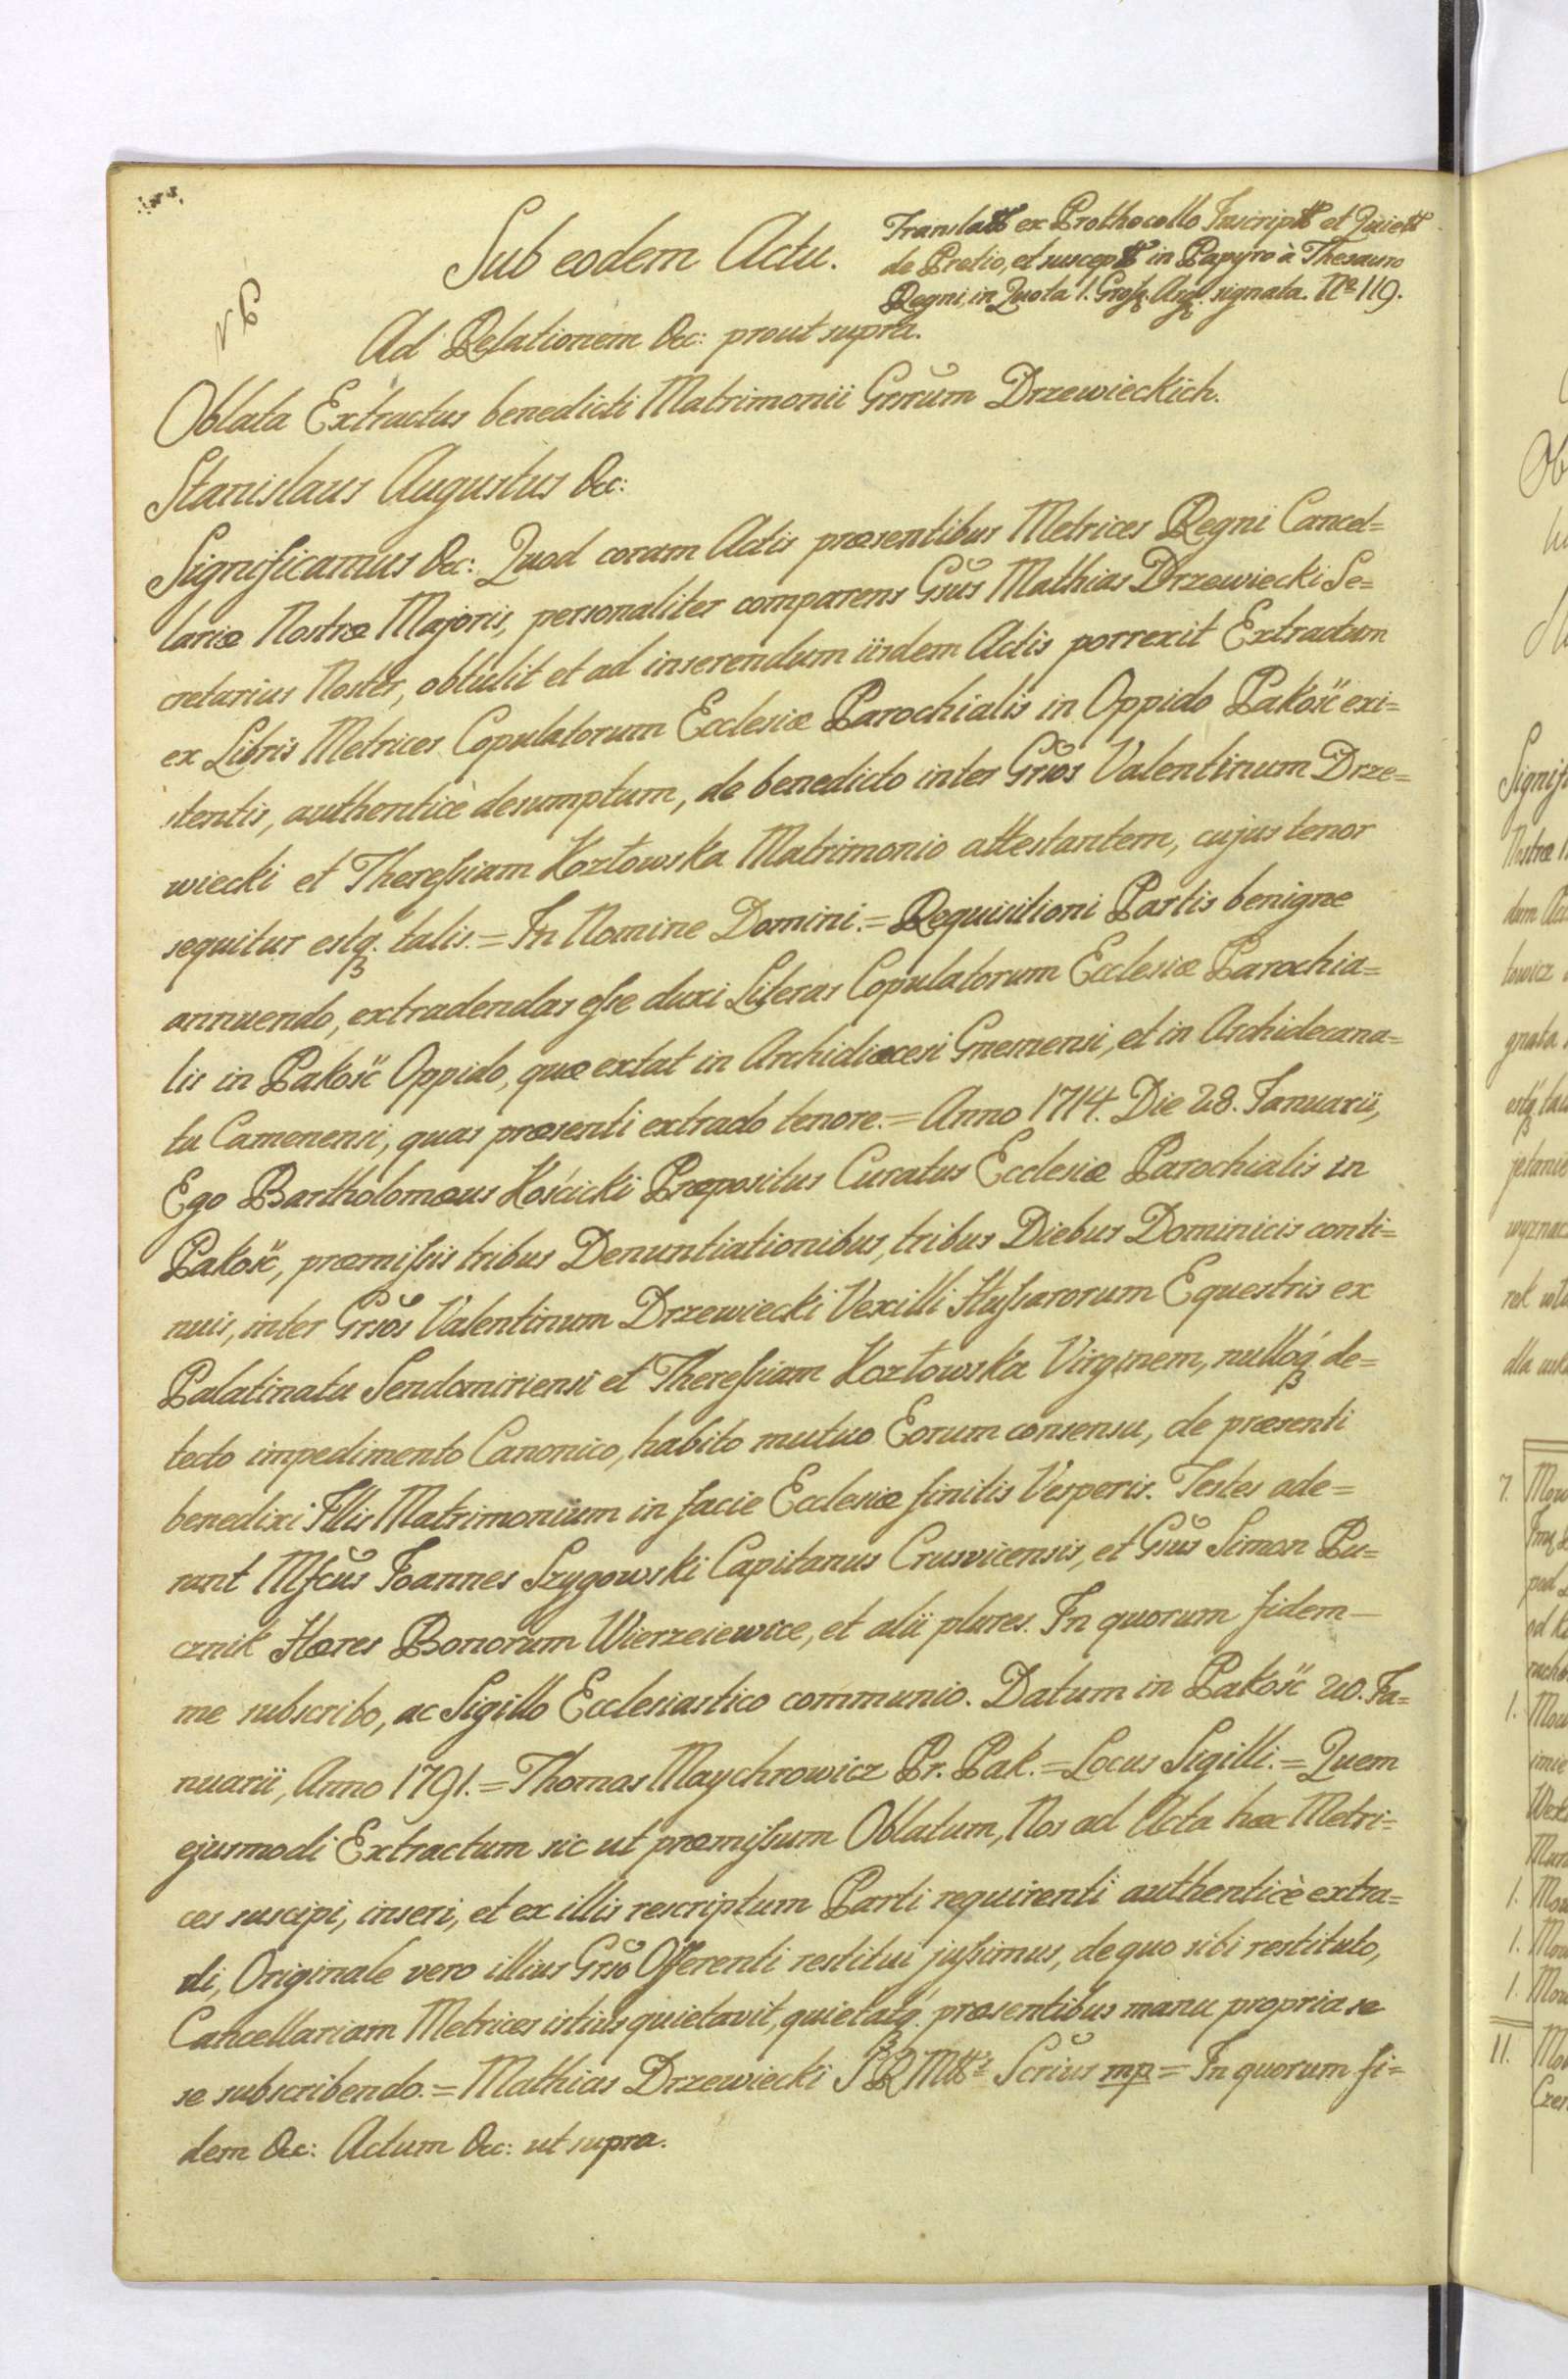 Sub eodem Actu.
Translatt ex Prothocollo Inscriptt et Quiett
de Pretio, et susceptt in Papyro à Thesauro
Regni, in Quota 1. Grosz. Arg. signata. No 119.
Ad Relationem &c: prout supra.
Oblata Extractus benedicti Matrimonii Grrum Drzewieckich.
Stanislaus Augustus &c:
Significamus &c: Quod coram Actis præsentibus Metrices Regni Cancel=
lariæ Nostræ Majoris, personaliter comparens Gsus Mathias Drzewiecki Se=
cretarius Noster, obtulit et ad inserendum iisdem Actis porrexit Extractum
ex Libris Metrices Copulatorum Ecclesiæ Parochialis in Oppido Pakość exi=
stentis, authenticè desumptum, de benedicto inter Grsos Valentinum Drze=
wiecki et Theressiam Kozłowska Matrimonio attestantem, cujus tenor
sequitur estq. talis. = In Nomine Domini. = Requisitioni Partis benigne
annuendo, extradendas esse duxi Literas Copulatorum Ecclesiæ Parochia=
lis in Pakość Oppido, quæ extat in Archidiæcesi Gnesnensi, et in Archidecana=
tu Camenensi, quas præsenti extrado tenore. = Anno 1714. Die 28. Januarii,
Ego Bartholomæus Kościcki Præpositus Curatus Ecclesiæ Parochialis in
Pakość, præmissis tribus Denuntiationibus, tribus Diebus Dominicis conti=
nuis, inter Grsos Valentinum Drzewiecki Vexilli Hussarorum Equestris ex
Palatinatu Sendomiriensi et Theressiam Kozłowska Virginem, nulloq. de=
tecto impedimento Canonico, habito mutuo Eorum consensu, de præsenti
benedixi Illis Matrimonium in facie Ecclesiæ finitis Vesperis. Testes ade=
rant Mfcus Joannes Szygowski Capitanus Crusvicensis, et Gsus Simon Pu=
cznik Hæres Bonorum Wierzeiewice, et alii plures. In quorum fidem
me subscribo, ac Sigillo Ecclesiastico communio. Datum in Pakość 20. Ja=
nuarii, Anno 1791. = Thomas Maychrowicz Pr. Pak. = Locus Sigilli. = Quem
ejusmodi Extractum sic ut præmissum Oblatum, Nos ad Acta hæc Metri=
ces suscipi, inseri, et ex illis rescriptum Parti requirenti authenticè extra=
di, Originale vero illius Grso Offerenti restitui jussimus, de quo sibi restituto,
Cancellariam Metrices istius quietavit, quietatq. præsentibus manu propria se
se subscribendo. = Mathias Drzewiecki S R Mtt Scrius mp = In quorum fi=
dem &c: Actum &c: ut supra.